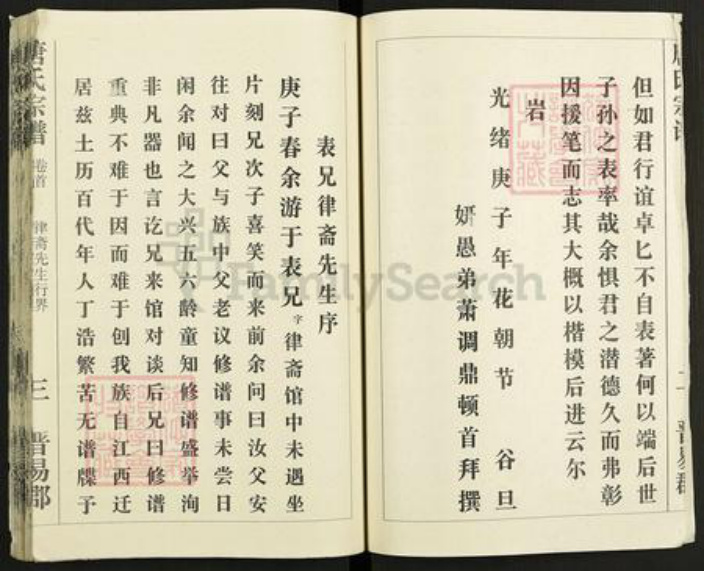 但如君行谊卓匕不自表著何以端后世
子孙之表率哉余惧君之潜德久而弗彰
因援笔而志其大概以楷模后进云尔
岩
光绪庚子年花朝节 谷旦
妍愚弟萧调鼎顿首拜撰
二
表兄律斋先生序
庚子春余游于表兄字律斋馆中未遇坐
片刻兄次子喜笑而来前余问曰汝父安
往对曰父与族中父老议修谱事未尝日
闲余闻之大兴五六龄童知修谱盛举洵
非凡器也言讫兄来馆对谈后兄曰修谱
重典不难于因而难于创我族自江西迁
居兹土历百代年人丁浩繁苦无谱牒予
唐氏宗谱 卷首 律斋先生行界 三 晋易郡
FamilySearch